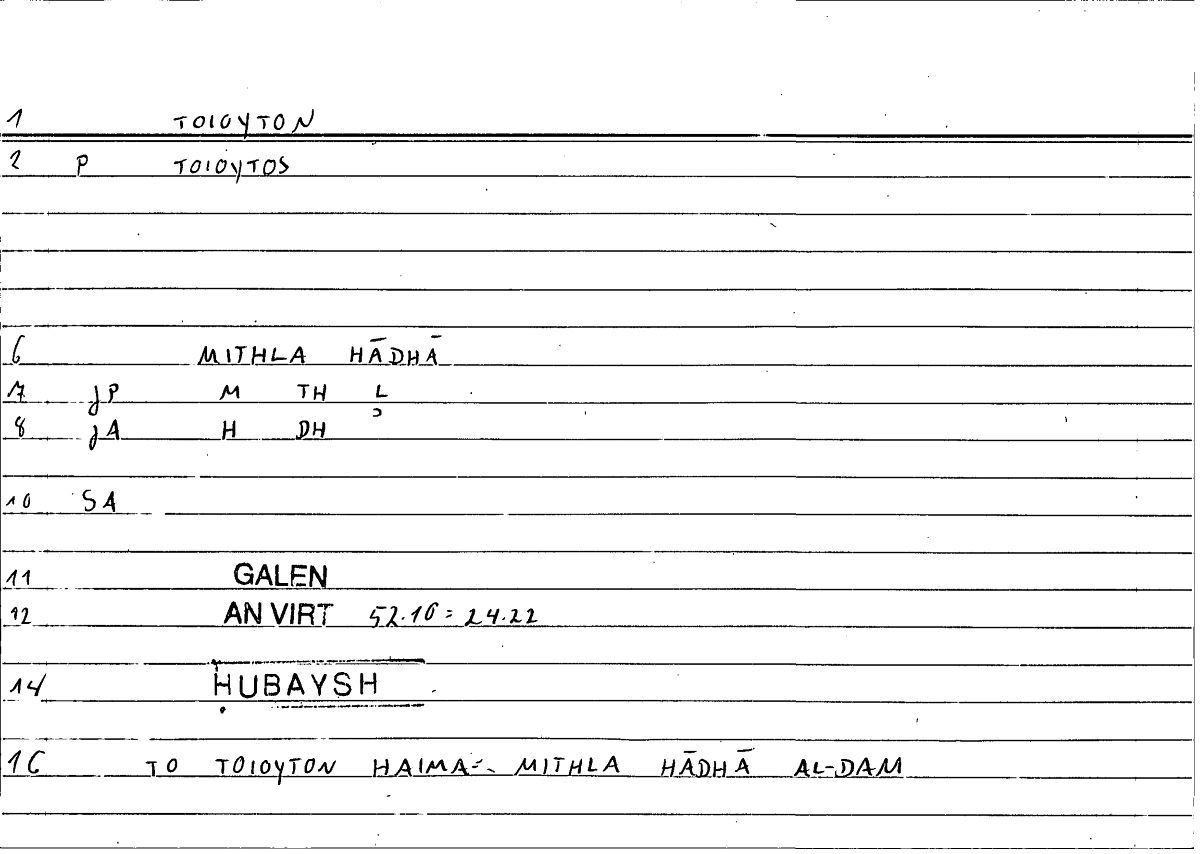 1 TOIOYTON
2 P TOIOYTOS
6 MITHLA HĀDHĀ
7 jP M TH L
8 jA H DH
10 SA
11 GALEN
12 AN VIRT 52.16 = 24.22
14 ḤUBAYSH
16 TO TOIOYTON HAIMA = MITHLA HĀDHĀ AL-DAM